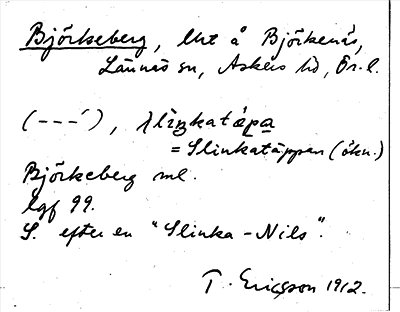 Björkeberg, lht å Björkenäs,
Lännäs sn, Askers hd, Ör. l.
(---´), slinkatäpa
= Slinkatäppan (ökn.)
Björkeberg ml.
lgf 99.
S. efter en "Slinka-Nils".
T. Ericsson 1912.